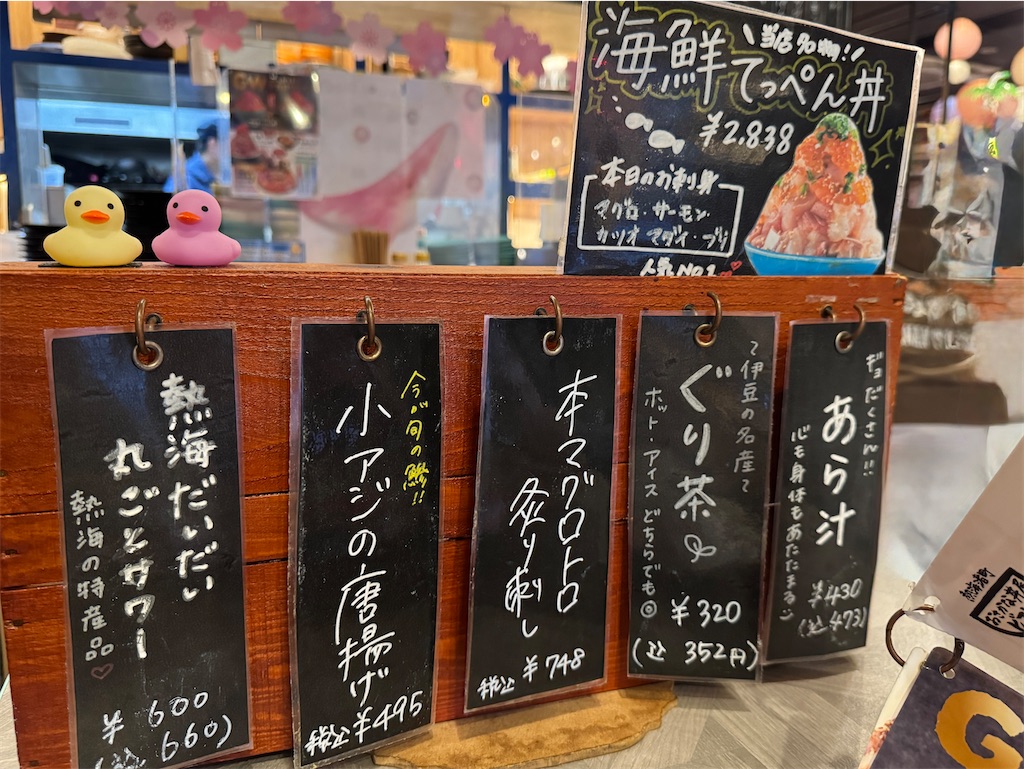 当店名物!!
海鮮てっぺん丼
¥2,838
本日のお刺身
マグロ・サーモン・
カツオ・マダイ・ブリ
人気No.1
熱海だいだい
丸ごとサワー
熱海の特産品♡
¥600
(込660)
今が旬の鯵!!
小アジの唐揚げ
税込¥495
本マグロトロ
炙り刺し
税込¥748
~伊豆の名産~
ぐり茶
ホット・アイスどちらでも◎
¥320
(込352円)
ギョだくさん!!
あら汁
心も身体もあたたまる
¥430
(込473)
G